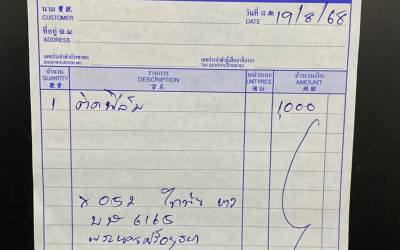 นาม
CUSTOMER
วันที่
DATE 19/8/68
ที่อยู่
ADDRESS
เลขประจำตัวประชาชน
IDENTIFICATION NO.
เลขประจำตัวผู้เสียภาษีอากร
TAX IDENTIFICATION NO.
จำนวน รายการ หน่วยละ จำนวนเงิน
QUANTITY DESCRIPTION UNIT PRICE AMOUNT
數量
1 ติดฟิล์ม 1,000
ขาว
6165
พระนครศรีอยุธยา